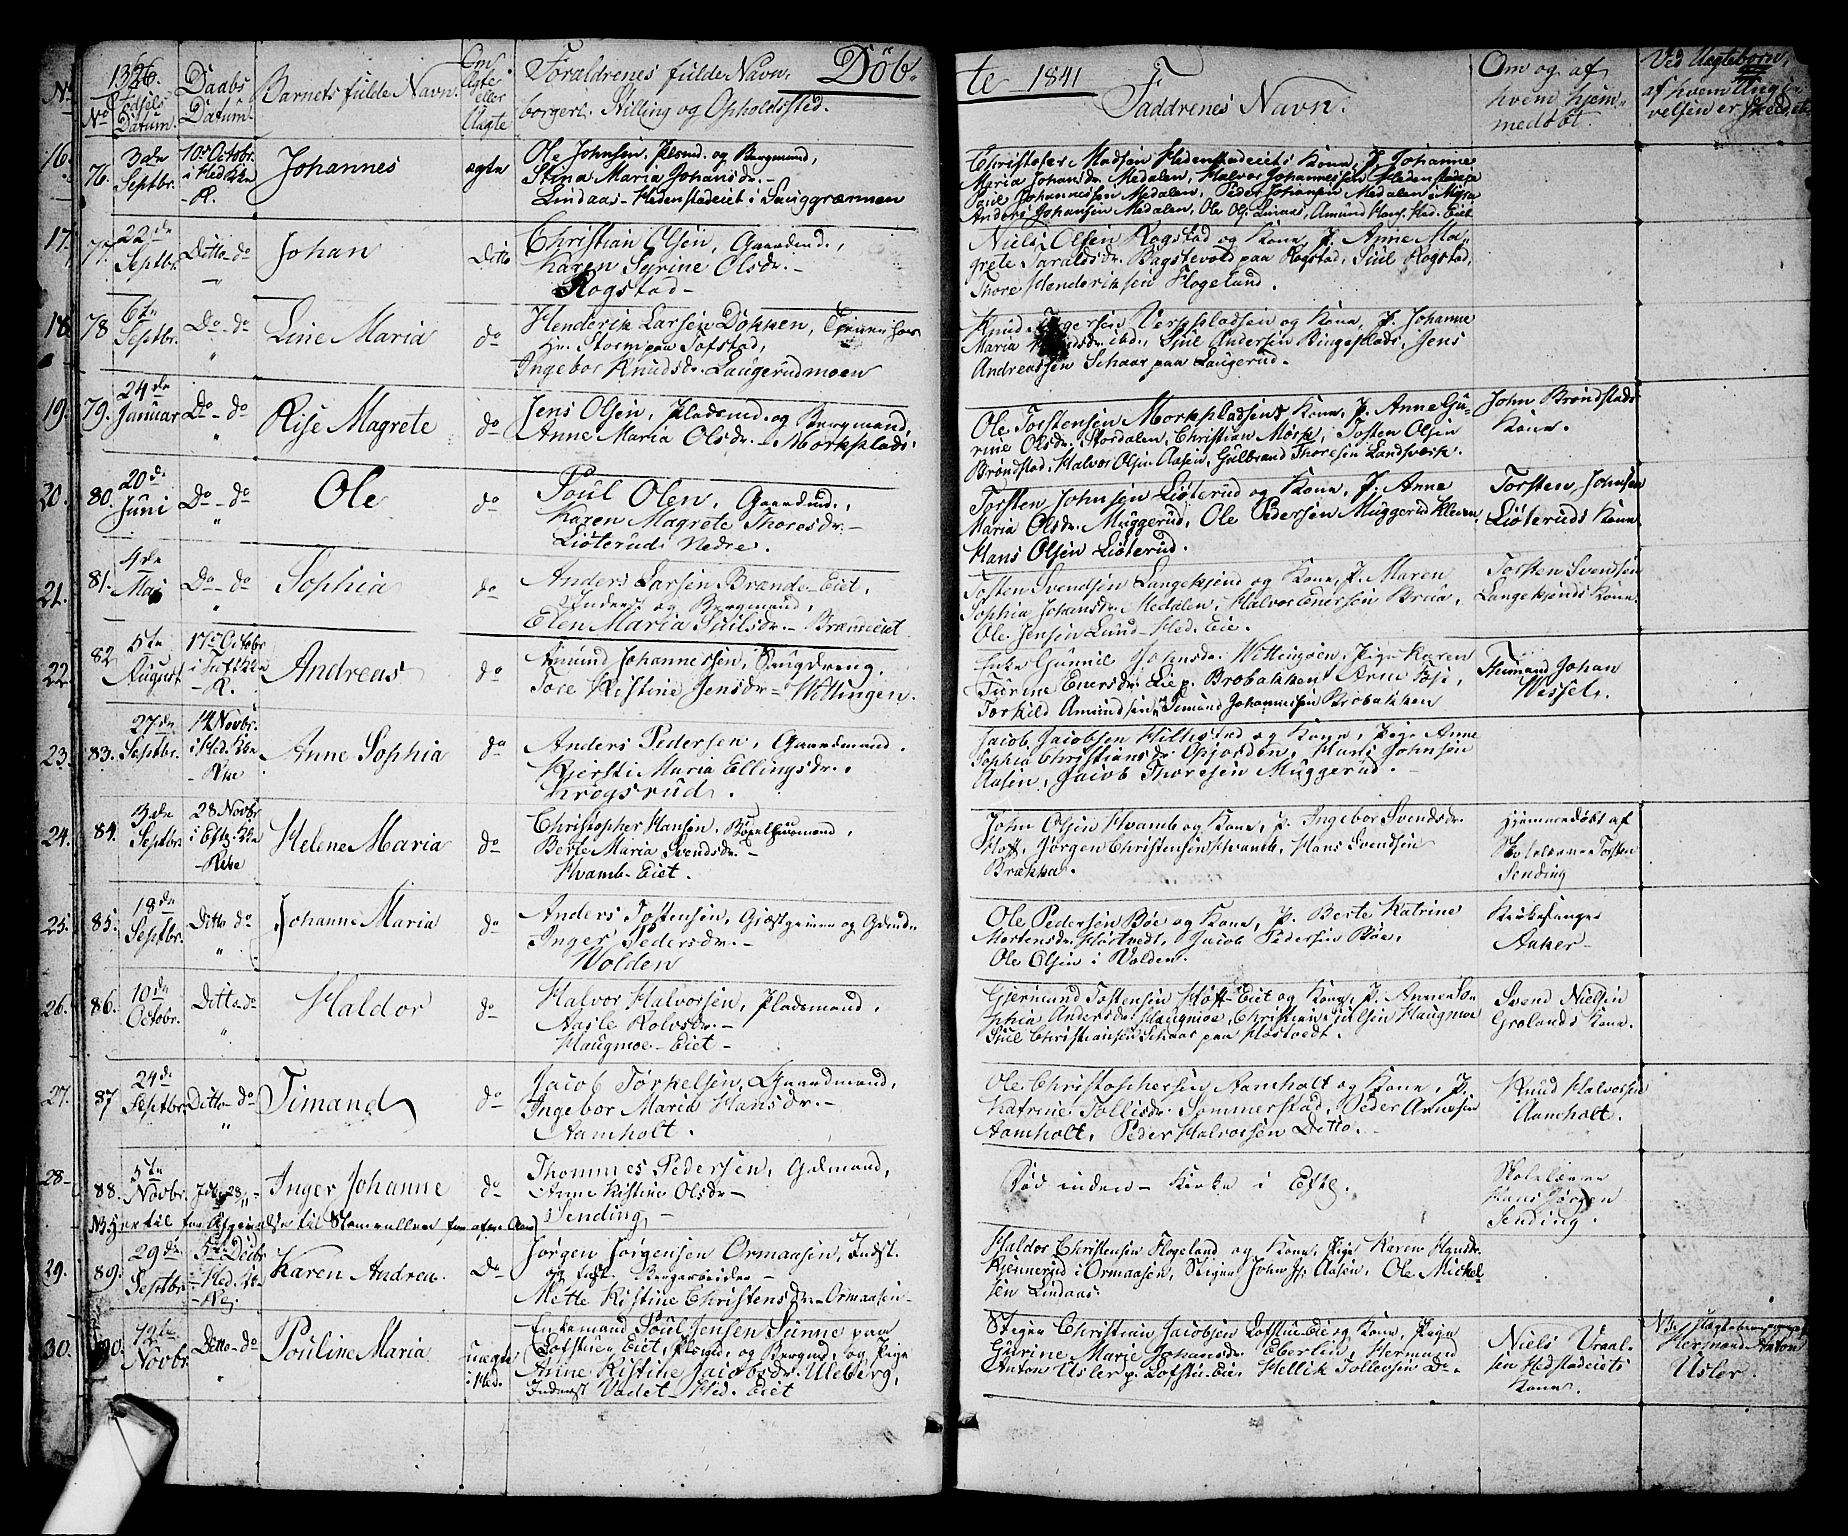 Döb- te 1841
No
1326.
No Fødsels Datum.
Daabs Datum.
Barnets fulde Navn.
Om Ægte eller Uægte
Forældrenes fulde Navn,
borgerl. Stilling og Opholdssted.
Faddrenes Navn.
Om og af
hvem hjem-
medøbt.
Ved Uægtebørn,
af hvem Angi-
velsen er skeed
16. 76. 3de Septbr. 10de Octobr. i Hed. Kke Johannes ægte
Ole Johnsen, Pladsmd. og Bergmand,
Stina Maria Johansdr. -
Lindaas - Hedenstadeiet i Sauggrænnen
Christofer Madsen Hedenstadeiets Kone, P. Johanne
Maria Johansdr. Medalen, Halvor Johannessen Hedenstadeie
Poul Johannessen Medalen, Peder Johansen Medalen
Anders Johansen Medalen, Ole Ols. Lindaas, Amund Hans. Hed. Eiet
17. 77. 22de Septbr. Ditto - do Johan Ditto
Christian Olsen, Gaardmd.,
Karen Syrine Olsdr. -
Rogstad -
Niels Olsen Rogstad og Kone, P. Anne Ma-
grete Taraldsdr. Bagstevold paa Rogstad, Juul Rogstad,
Thore Henderiksen Flogelund.
18. 78. 6te Septbr. Do - do Line Maria do
Henderik Larsen Dokken, Tjener hos
Hr. Storm paa Tofstad,
Ingebor Knudsdr. Laugerudmoen
Knud Verpladsen og Kone, P. Johanne
Maria ibd., Juul Andersen Bingeplads, Jens
Andreassen Schaar paa Laugerud -
19. 79. 24de Januar Do - do Rise Magrete do
Jens Olsen, Pladsmd. og Bergmand,
Anne Maria Olsdr. - Morkplads.
Ole Torstensen Morkpladsens Kone, P. Anne Gu-
rine Olsdr. Stordalen, Christian Mørk, Tosten Olsen
Brøndstad, Halvor Olsen Aasen, Gulbrand Thoresen Landsverk.
John Brøndstads
Kone.
20. 80. 20de Juni Do - do Ole do
Poul Olen, Gaardmd.,
Karen Magrete Thoresdr. -
Liøterud Nedre.
Torsten Johnsen Liøterud og Kone, P. Anne
Maria Olsdr. Muggerud, Ole Pedersen Muggerud Kleven
Hans Olsen Liøterud.
Torsten Johnsen
Liøteruds Kone
21. 81. 4de Mai Do - do Sophia do
Anders Larsen Brænde-Eiet,
Inderst og Bergmand,
Elen Maria Juulsdr. - Brændeeiet
Tosten Svendsen Langekjend og Kone, P. Maren
Sophia Johansdr. Medalen, Halvor Enersen Braa,
Ole Jensen Lund - Hed. Eie.
Torsten Svensen
Langekjends Kone.
22. 82 5te August 17de Octobr. i Tuft Kke Andreas do
Amund Johannessen, Saugdreng,
Tore Kistine Jensdr. - Wittingen.
Enke Gunnil Johnsdr. Wittingen, Pige Karen
Turine Enersdr. Lie p. Brobakken, Arne
Torkild Amundsen, Simund Johannessen Brobakken
Thimand Johan
Wessel.
23. 83. 27de Septbr. 14 Novbr. i Hed. Kke Anne Sophia do
Anders Pedersen, Gaardmand.
Kjersti Maria Ellingsdr.
Krogsrud.
Jacob Jacobsen Hillestad og Kone, Pige Anne
Sophia Christiansdr. Opjorden, Hans Johnsen
Aasen, Jacob Thoresen Muggerud. -
24. 84. 3de Septbr. 28 Novbr. i Eftl. Kke Helene Maria do
Christopher Hansen, Bøxelhusmand,
Berte Maria Svendsdr. -
Hvamb-Eiet.
John Olsen Hvamb og Kone, P. Ingebor Svendsdr.
Hoff, Jørgen Christensen Hvamb, Hans Svendsen
Brække.
Hjemmedøbt af
Skolelærer Torsten
Sending
25. 85. 18de Septbr. Ditto do Johanne Maria do
Anders Tostensen, Gjæstgiver og Gdmd.
Inger Pedersdr. -
Wolden
Ole Pedersen Bøe og Kone, P. Berte Katrine
Mortensdr. Hostvedt, Jacob Pedersen Bøe,
Ole Olsen i Volden.
Kirkesanger
Anker -
26. 86. 10de Octobr. Ditto - do Haldor do
Halvor Halvorsen, Pladsmand,
Aasle Rolvsdr. -
Haugmoe-Eiet -
Gjermund Tostensen Hoff-Eiet og Kone, P. Anne So-
phia Andersdr. Haugmoe, Christian Juulsen Haugmoe
Juul Christiansen Schaar paa Hostvedt.
Svend Nielsen
Grølands Kone.
27. 87 24de Septbr. Ditto - do Timand do
Jacob Torkelsen, Gaardmand,
Ingebor Maria Hansdr. -
Aamholt.
Ole Christophersen Aamholt og Kone, P.
Katrine Tollisdr. Sommerstad, Peder Arnesen
Aamholt, Peder Halvorsen Ditto. -
Knud Halvorsen
Aamholt.
28. 88. 5te Novbr. Inger Johanne do
Thommes Pedersen, Gdmand,
Anne Kistine Olsdr -
Sending,
Død inden - Kirke i Eftl.
Skolelærer
Hans Jørgen
Sending.
29. 89. 29de Septbr. 5te Decbr. Hed. Kke Karen Andrea. Do
Jørgen Jørgensen Ormaasen, Indst.
og Bergarbeider -
Mette Kistine Christensdr. - Ormaasen -
Haldor Christensen Flogeland og Kone, Pige Karen Hansdr.
Kjennerud i Ormaasen, Stiger John Js. Aasen, Ole Mickel-
sen Lindaas.
30. 90. 14de Novbr. Ditto - do Pouline Maria uægte i Hed.
Enkemand Poul Jensen Sunne paa
Lofstue Eiet, Plsmd. og Bergmd. og Pige
Anne Kistine Jacobsdr. Uleberg,
Inderst Vadet - Hed. Eiet
Stiger Christian Jacobsen Lofstu-Eie og Kone, Pige
Gurine Marie Johansdr. Eberlin, Hermand
Anton Usler p. Lofstu-Eie, Hellik Tollevsen Do -
Niels Vraal-
sen Hedstadeiets
Kone.
Hermand Anton
Usler.